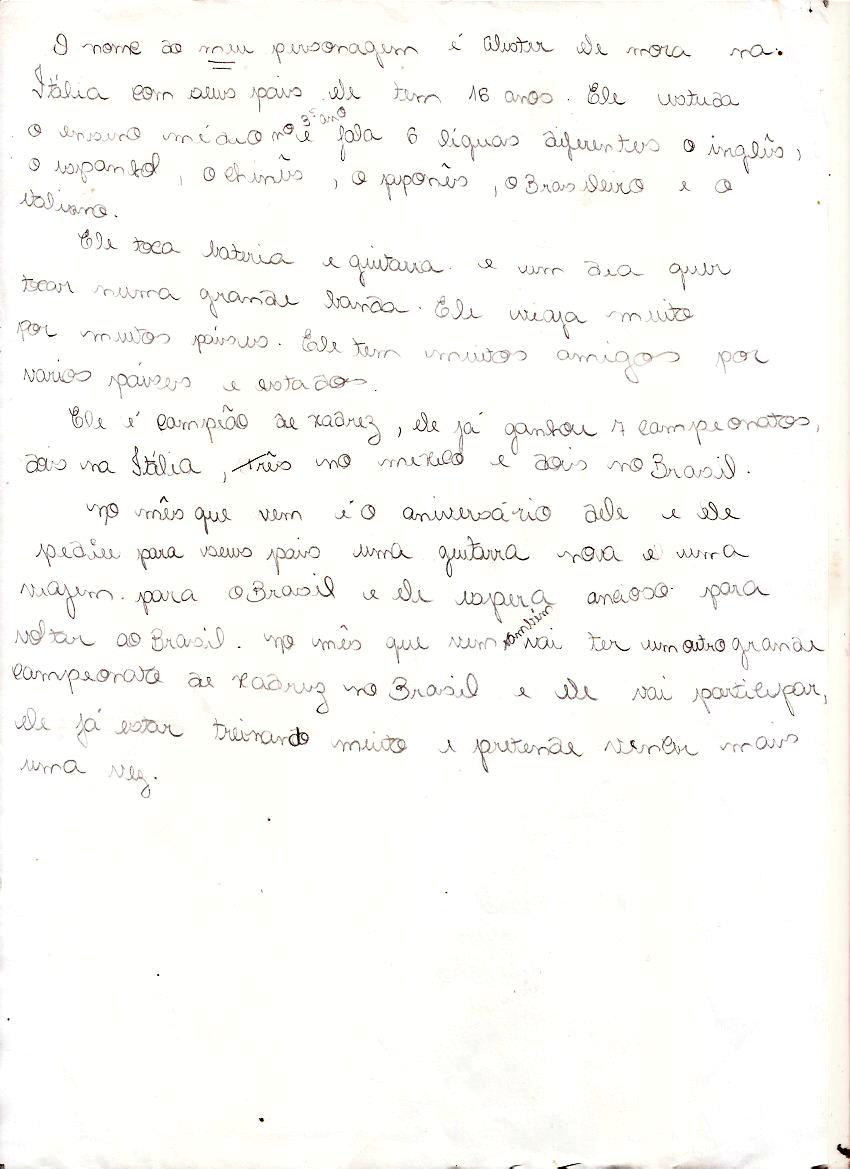 O nome do meu personagem é Alister ele mora na.
Itália com seus pais ele tem 16 anos. Ele estuda
o ensino médio no 3º ano e fala 6 líguas diferentes o inglês,
o espanhol, o chinês, o japonês, o Brasileiro e o
italiano.
Ele toca bateria e guitarra. e um dia quer
tocar numa grande banda. Ele viaja muito
por muitos páises. Ele tem muitos amigos por
varios páises e estados.
Ele é campião de xadrez, ele já ganhou 7 campeonatos,
dois na Itália, três no méxico e dois no Brasil.
no mês que vem é o aniversário dele e ele
pediu para seus pais uma guitarra nova e uma
viajem. para o Brasil e ele espera ancioso para
voltar ao Brasil. no mês que vem também vai ter um outro grande
campeonato de xadrez no Brasil e ele vai participar,
ele já estar treinando muito e pretende vencer mais
uma vez.